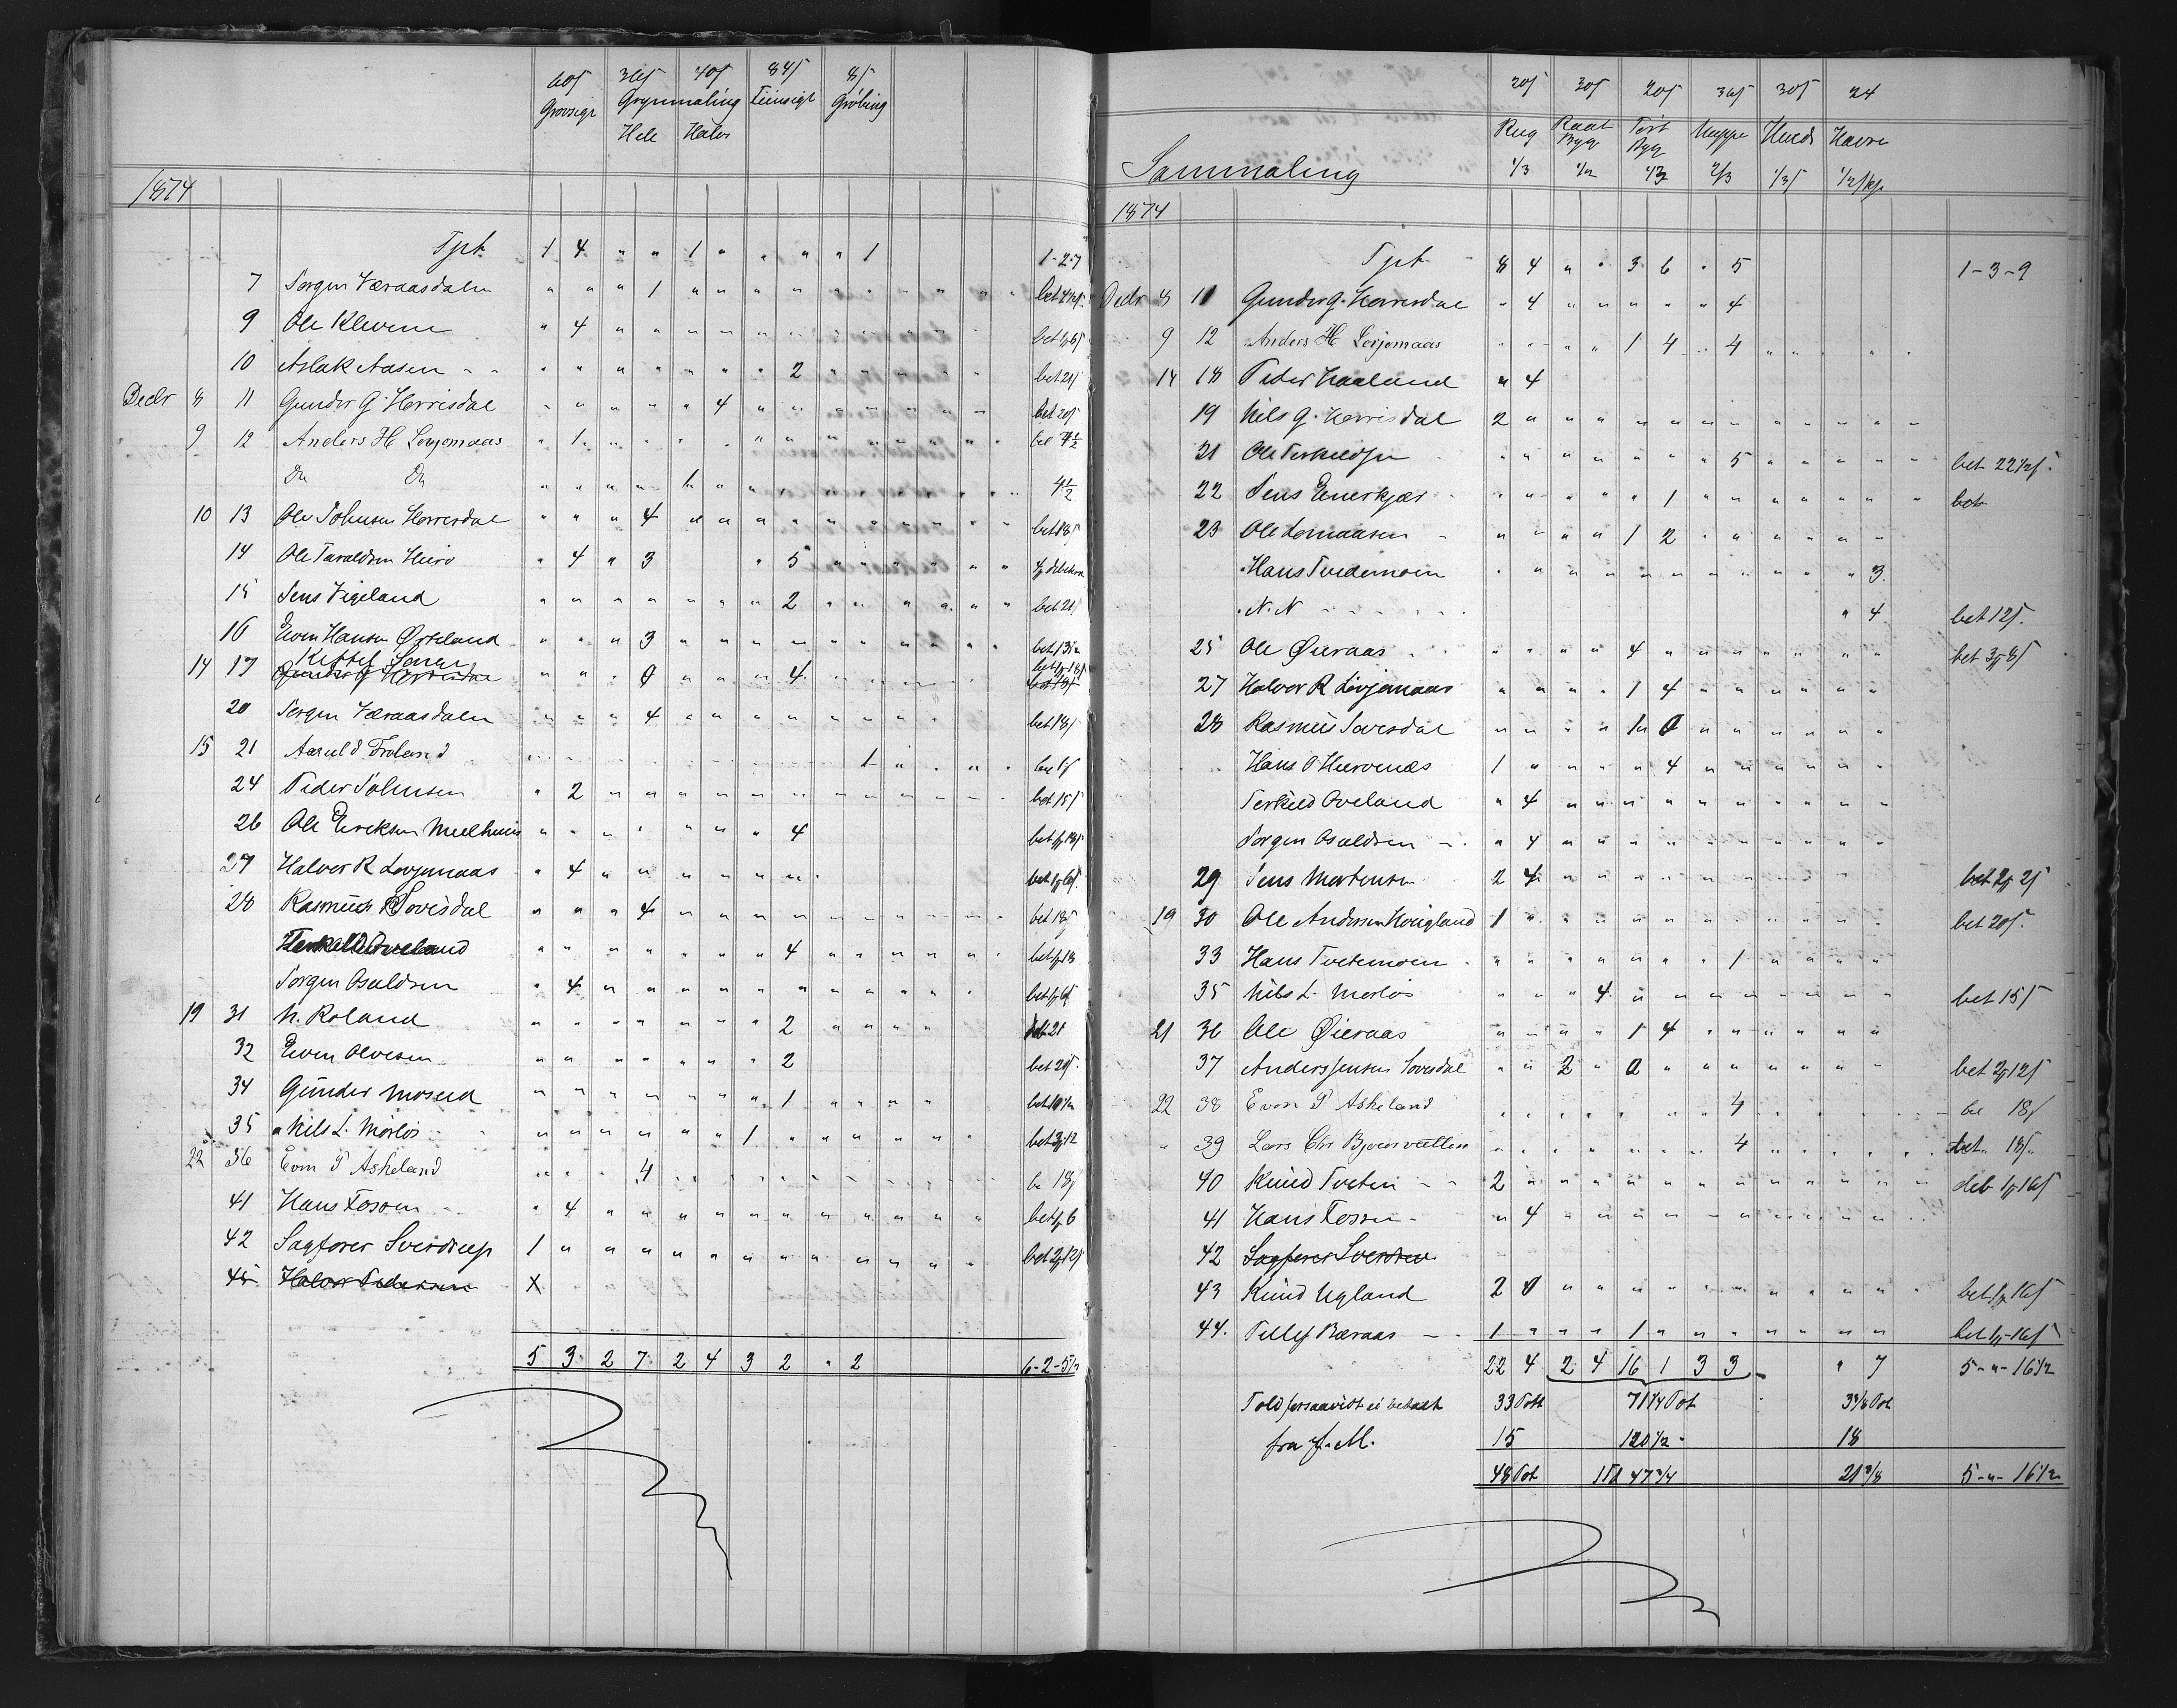 60ſ 36ſ 40ſ 84ſ 8ſ
Grovsigt Grynmaling Fiinsigt Gröbing
Hele Halv
1874
Tpt 1 4 " " 1 " " " " 1 1-2-7
7 Jørgen Væraasdalen " " " 1 " " " " " " " " " bet 4½ſ
9 Ole Klevene " 4 " " " " " " " " " " bet 1/ 6ſ
10 Aslak Aasen - - " " " " " " " 2 " " " " bet 21ſ
Decbr 8 11 Gunder G. Herrisdal " " " " " 4 " " " " " " " bet 20ſ
9 12 Anders H Lovjomaas " 1 " " " " " " " " " " " bet 7½
Do Do " " " " 1 " " " " " " " " 4½
10 13 Ole Johnsen Herrisdal " " " 4 " " " " " " " " " bet 18ſ
14 Ole Taraldsen Huro " 4 " 3 " 5 " " " " "
15 Jens Vigeland " " " " " " " 2 " " " " " bet 21ſ
16 Even Hansen Øpteland " " " 3 " " " " " " " " bet 13½
Kittel Sørum bet 1/ 18ſ
14 17 Gunder G Herrisdal " " " 0 " " " 4 " " " " bet 18ſ
20 Jørgen Væraasdalen " " " 4 " " " " " " " bet 18ſ
15 21 Aanuld Froland 1 " " " bet 8ſ
24 Peder Johnsen " 2 " " " " " " " " " " bet 15ſ
26 Ole Ericksen Meelhuus " " " " " " " 4 bet 1/ 18ſ
27 Halvor R Lovjomaas " 4 " " " " " " bet 1/ 6ſ
28 Rasmus Sovisdal " " " 4 " " " " " " " " " bet 18ſ
Terkeld Oveland " " " " " " " 4 " " " " " bet 1/ 18
Jørgen Osuldsen " 4 " " " " " " " " " " bet 1/ 6ſ
19 31 N. Roland " " " " " " " 2 " " " " bet 21
32 Even Olvesen " " " " " " " 2 bet 20ſ
34 Gunder Moseid " " " " " " " 1 " " " " bet 10½
35 Nils L. Mørlös " " " " " " 1 " " " " " " bet 3/ 12
22 36 Even P Askeland " " " 4 " " " " " " " " be 18ſ
41 Hans Fosom " 4 " " " " " " " " " " " bet 1/ 6
42 Sagfører Sverdrup 1 " " " " " " " " " " " " bet 2/ 12ſ
45 Halvor Pedersen X
5 3 2 7 2 4 3 2 " 2 6-2-5½
20ſ 30ſ 20ſ 36ſ 30ſ 24
Rug Raat Byg Tørt Byg Meppe Hvede Havre
Sammaling 1/3 ½ 1/3 2/3 1/3ſ
1874
Tpt 8 4 " " 3 6 " 5 1-3-9
Decbr 8 11 Gunder G. Herrisdal " 4 " " " " " 4
9 12 Anders H Lovjomaas " " " " 1 4 " 4 " " " " "
14 18 Peder Haaland " 4
19 Nils G. Herrisdal 2 " " " " " " " " " " " "
21 Ole Terkeldsen " " " " " " " 5 " " " " " bet 22½ſ
22 Jens Enerkjær " " " " " 1 " " " " " " " bet
23 Ole Lomaasen " " " " 1 2 " " " " " "
Hans Tvedemoen " " " " " " " " " " " 3
N. N " 4 bet 12ſ
25 Ole Øieraas " " " " 4 " " " " " " " bet 3/ 8ſ
27 Halvor R Lovjomaas " " " " 1 4 " " " " " "
28 Rasmus Sovisdal " " " " 1 0 " " " " " "
Hans O Hurvenæs 1 " " " " 4 " " " " " "
Terkeld Oveland " 4 " " " " " " " " " "
Jørgen Osuldsen " 4 " " " " " " " " " "
29 Jens Mortensen 2 4 " " " " " " " " bet 2/ 2ſ
19 30 Ole Andersen Houigland 1 " " " " " " " " " " bet 20ſ
33 Hans Tvetemoen " " " " " " " 1 " " " "
35 Nils L. Mørlös " " " 4 " " " " " " " " bet 15ſ
21 36 Ole Øieraas " " " " 1 4 " " " " " "
37 Anders Jensen Sovisdal " " 2 " 0 " " " " " " " bet 2/ 12ſ
22 38 Even P Askeland " " " " " " " 4 " " " " be 18ſ
" 39 Lars Chr Bjorvatten " " " " " " " 4 " " " " bet 18ſ
40 Knud Tveten - - 2 " " " " " " " " " " " deb 1/ 16ſ
41 Hans Fosom - " 4 " " " " " " " " " "
42 Sagfører Sverdrup
43 Knud Ugland 2 0 " " " " " " " " " " bet 1/ 16ſ
44. Tellef Bæraas 1 " " " 1 " " " " " " " bet 1/ 16ſ
22 4 2 4 16 1 3 3 " 7 5-"-16½
Told forsaavidt ei betalt 33 Pott 71¼ Pot 3⅜ Pot
fra f. M. 15 120½ 18
48 Pot 1 Td 47¾ 21⅜ 5-"-16½